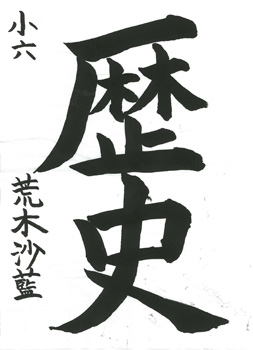 歴史
小六
荒木沙藍